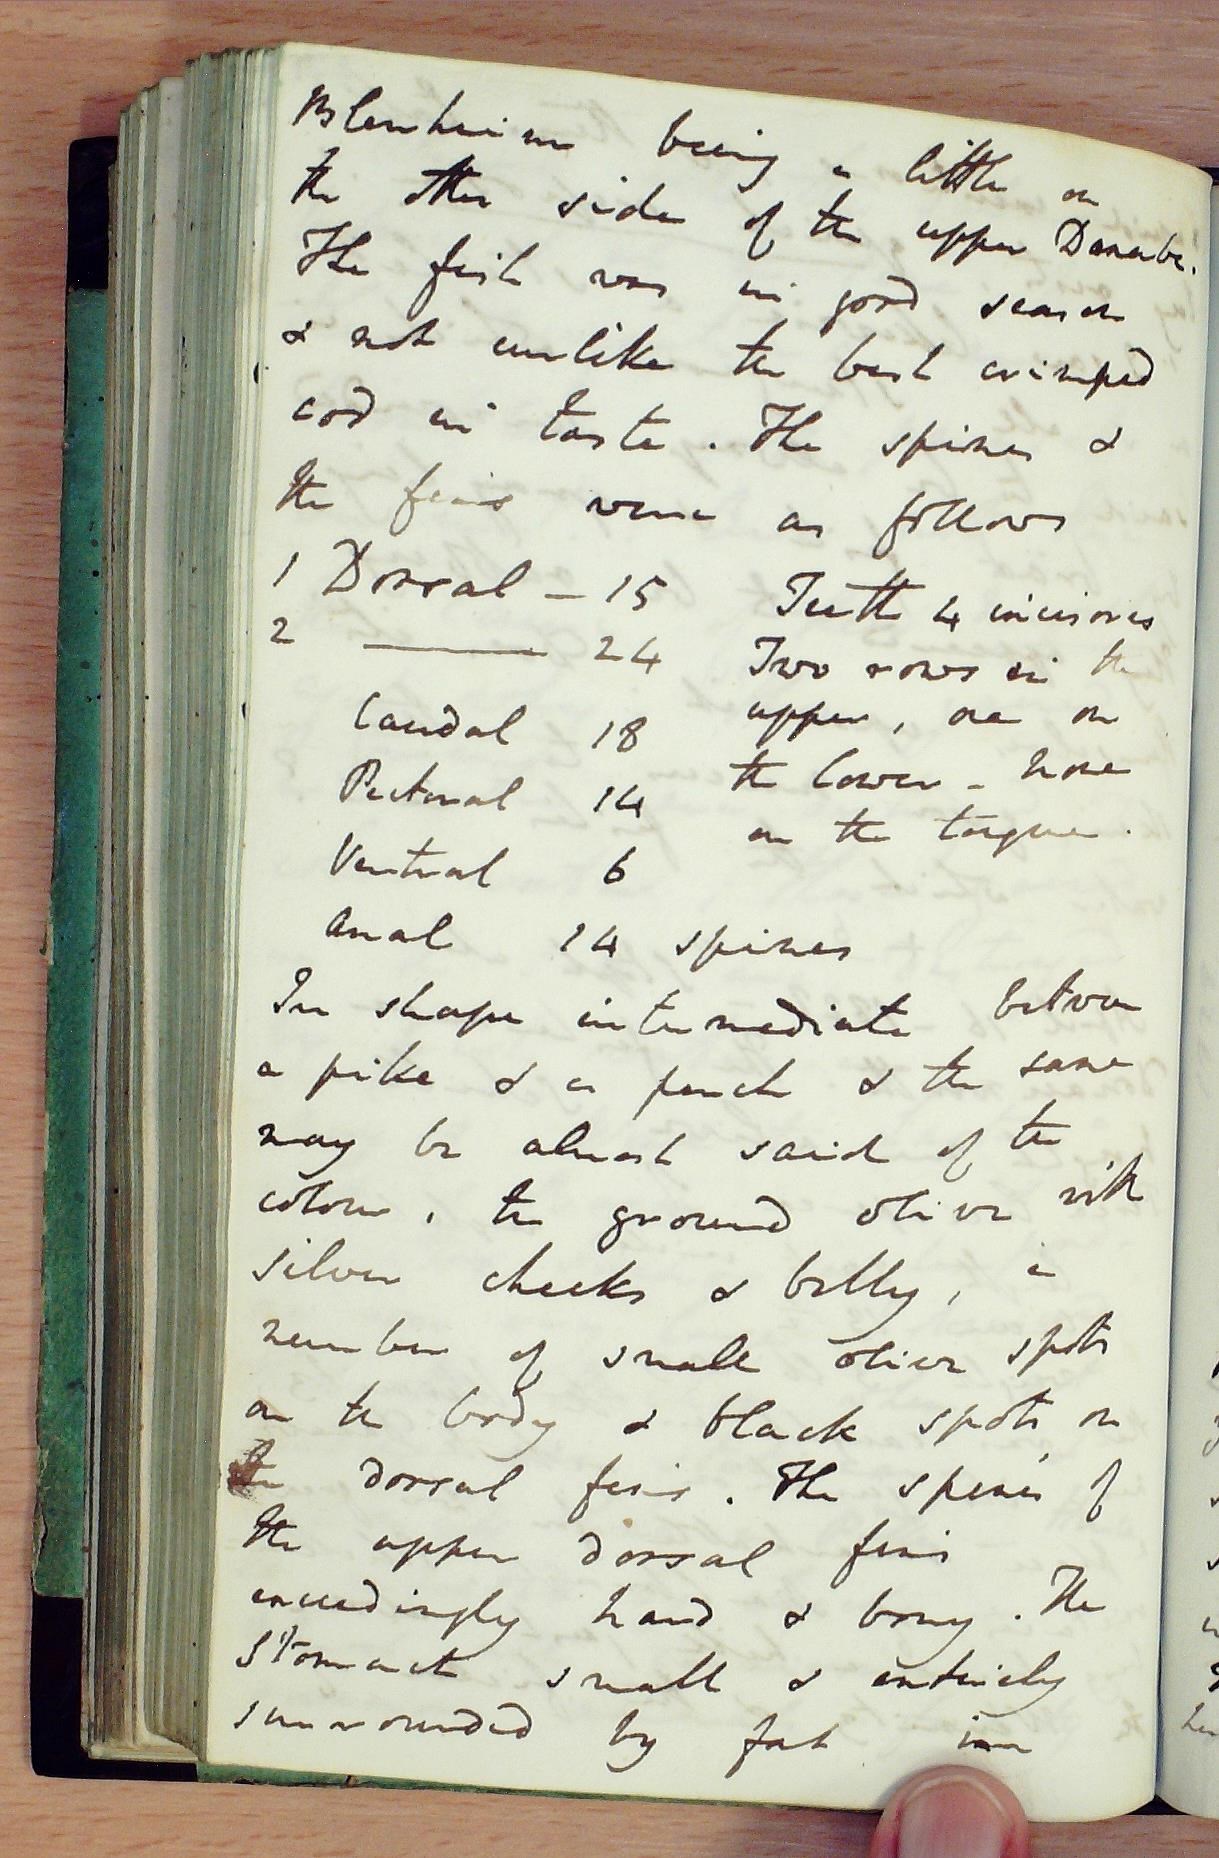 Blenheim being a little on
the other side of the upper Danube.
The fish was in good season
& not unlike the best crimped
cod in taste. The spines &
the fins were as follows
1 Dorsal – 15
2 ——— 24
Caudal 18
Pectoral 14
Ventral 6
Anal 14 spines
Teeth 4 incisores
Two rows in the
upper, one on
the lower - none
on the tongue.
In shape intermediate between
a pike & a perch & the same
may be almost said of the
colour, the ground olive with
silver cheeks & belly, a
number of small olive spots
on the body & black spots on
the dorsal fins. The spines of
the upper dorsal fins
exceedingly hard & bony. The
stomach small & entirely
surrounded by fat in